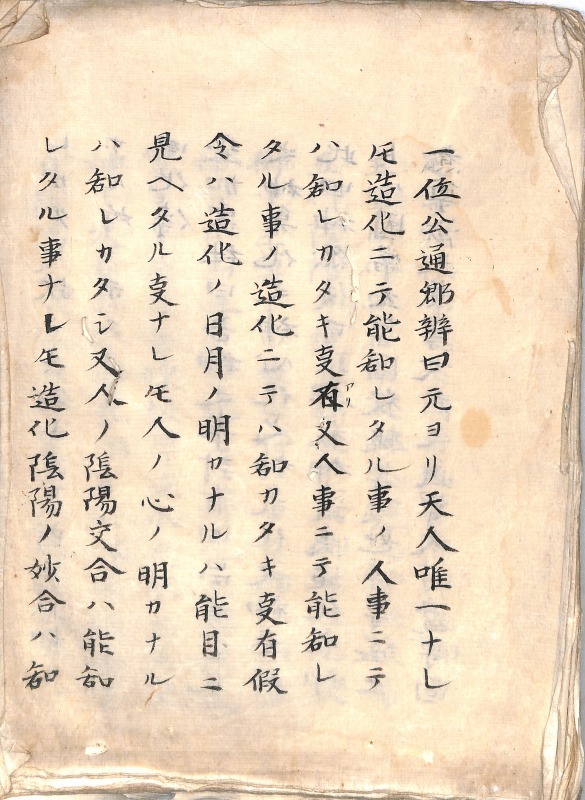 一位公通郷辨曰元ヨリ天人唯一ナレ
𪜈造化ニテ能知レタル事ノ人事ニテ
ハ知レカタキ㕝有アリ又人事ニテ能知レ
タル事ノ造化ニテハ知カタキ㕝有假
令ハ造化ノ日月ノ明カナルハ能目ニ
見ヘタル㕝ナレ𪜈人ノ心ノ明カナル
ハ知レカタシ又人ノ陰陽交合ハ能知
レタル事ナレ𪜈造化陰陽ノ妙合ハ知